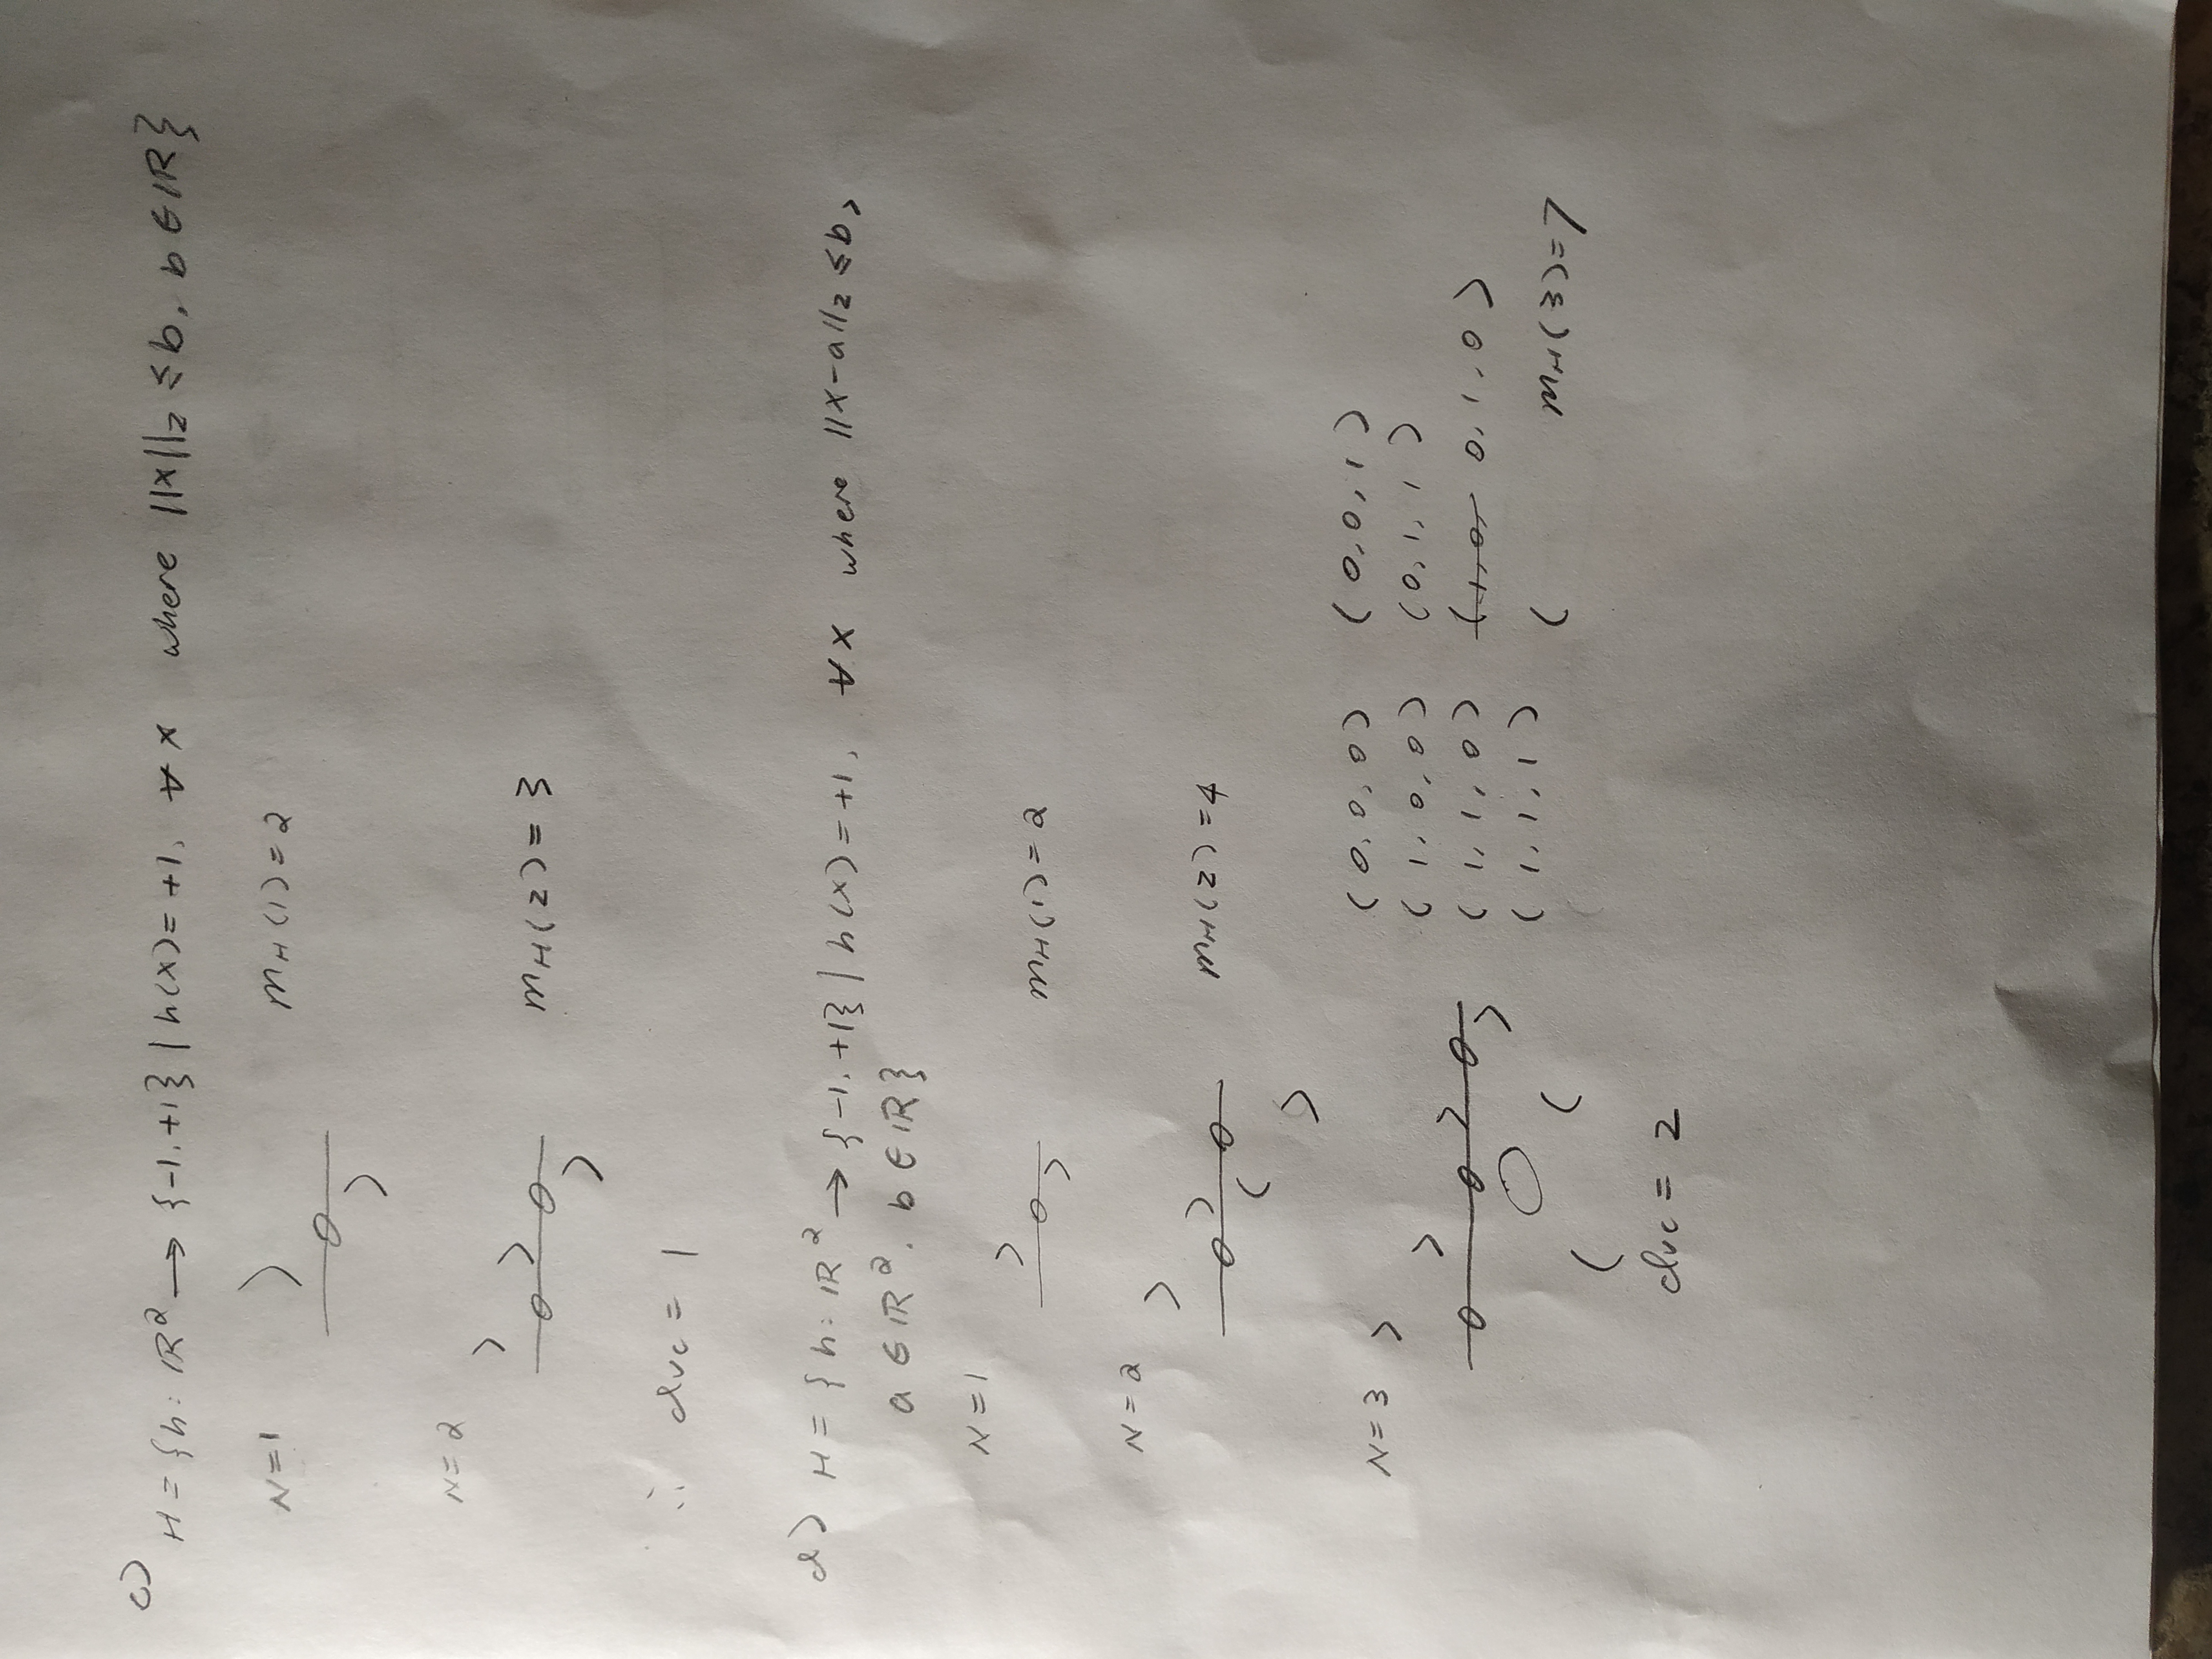 c)
H = {h: ℝ² → {-1, +1} | h(x) = +1, ∀ x where ||x||₂ ≤ b, b ∈ ℝ}
N=1 mH(1) = 2
N=2 mH(2) = 3
∴ dvc = 1
d) H = {h: ℝ² → {-1, +1} | h(x) = +1, ∀x where ||x-a||₂ ≤ b,
a ∈ ℝ², b ∈ ℝ}
N=1 mH(1) = 2
N=2 mH(2) = 4
N=3 (0, 0, 0) (0, 0, 1)
(1, 0, 0) (0, 1, 1)
(1, 1, 0) (1, 0, 0, 1, 0)
(1, 1, 1) ( mH(3) = 7
dvc = 2